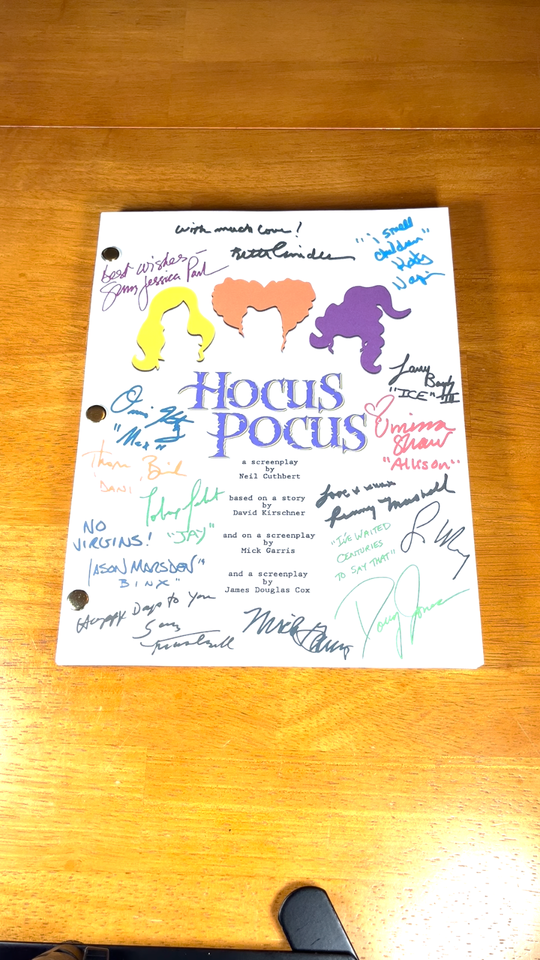 with much love!
Bette Midler
"i smell
children"
Kathy
Najimy
Best wishes -
Sarah Jessica Park
Larry
Bagby
"ICE" III
HOCUS
POCUS
Omri Katz
"Max"
Vinessa
Shaw
"Allison"
Thora Birch
DANI
a screenplay
by
Neil Cuthbert
based on a story
by
David Kirschner
and on a screenplay
by
Mick Garris
and a screenplay
by
James Douglas Cox
Tobias
"JAY"
Love &
Penny Marshall
NO
VIRGINS!
JASON MARSDEN
"BINX"
"I'VE WAITED
CENTURIES
TO SAY THAT"
Doug Jones
Happy Days to You
Garry
Marshall
Mick Garris